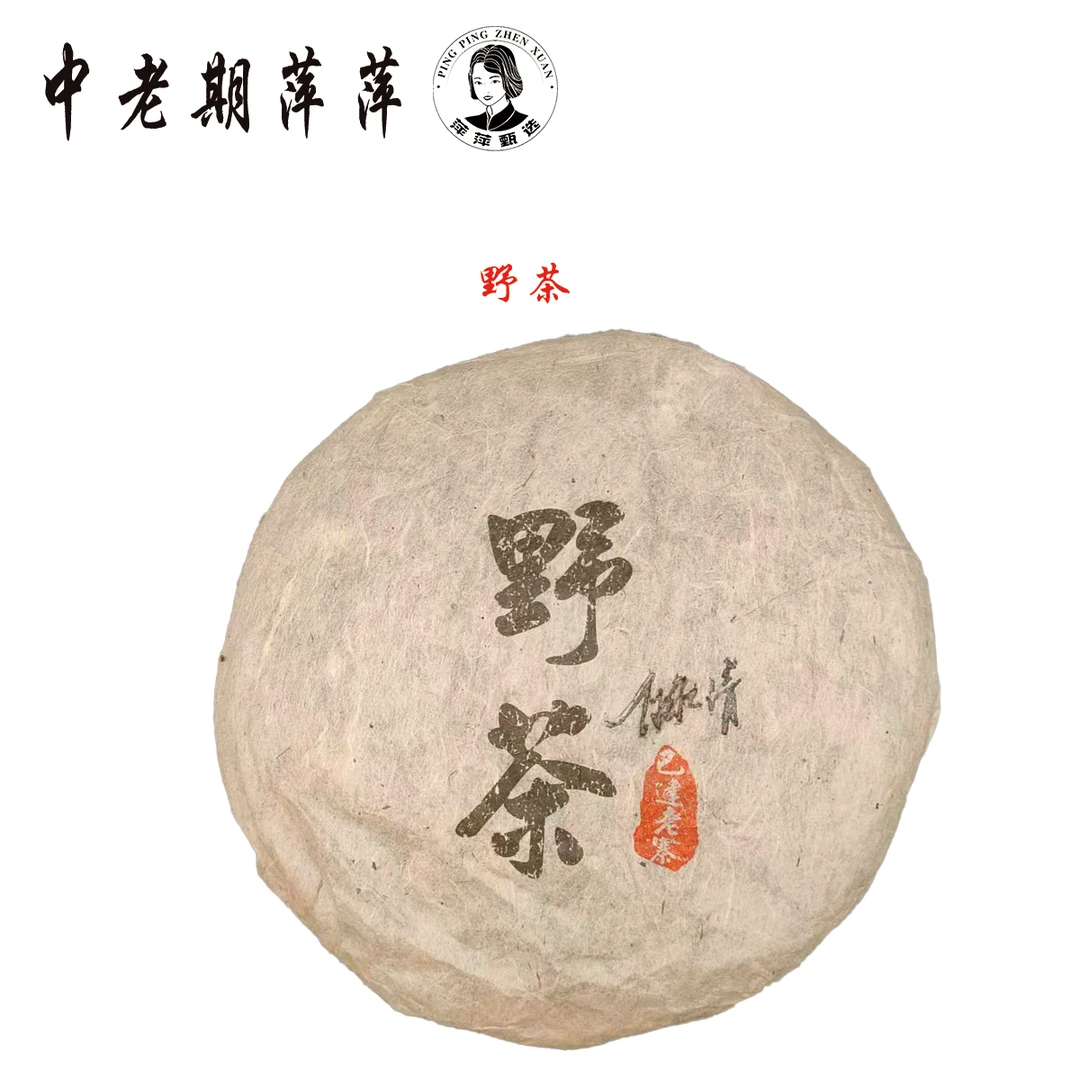 中老期萍萍
PING PING ZHEN XUAN
萍萍甄选
野茶
野
茶
巴達老寨